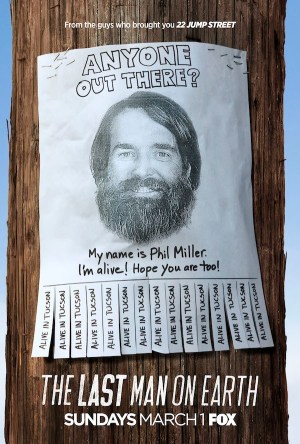 From the guys who brought you 22 JUMP STREET
ANYONE
OUT THERE?
My name is Phil Miller.
I'm alive! Hope you are too!
ALIVE IN TUCSON
ALIVE IN TUCSON
ALIVE IN TUCSON
ALIVE IN TUCSON
ALIVE IN TUCSON
ALIVE IN TUCSON
ALIVE IN TUCSON
ALIVE IN TUCSON
ALIVE IN TUCSON
ALIVE IN TUCSON
ALIVE IN TUCSON
ALIVE IN TUCSON
ALIVE IN TUCSON
THE LAST MAN ON EARTH
SUNDAYS MARCH 1 FOX